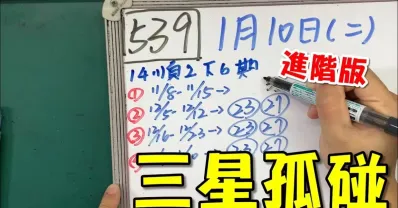 539 1月10日(二)
進階版
14順2下6期
① 11/8-11/15→
② 12/5-12/12→ 23 27
③ 12/16-12/23→ 23 27
三星孤碰